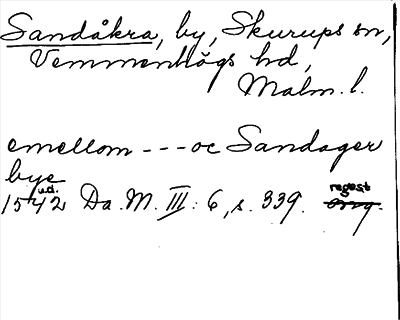 Sandåkra, by, Skurups sn,
Vemmenhögs hd,
Malm. l.
emellom --- oc Sandager
bye
u.d. regest
1542 Da. M. III: 6, s. 339. orig.